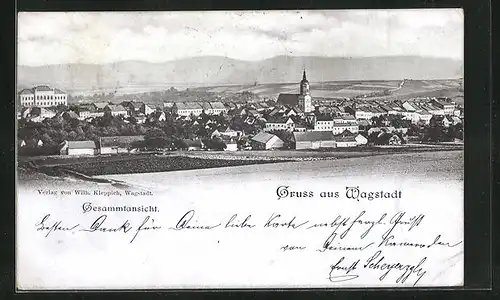 Gruss aus Wagstadt
Verlag von Wilh. Kleppich, Wagstadt.
Gesammtansicht.
Besten Dank für Deine liebe Karte nebst herzl. Gruß
von Deinem
Ernst